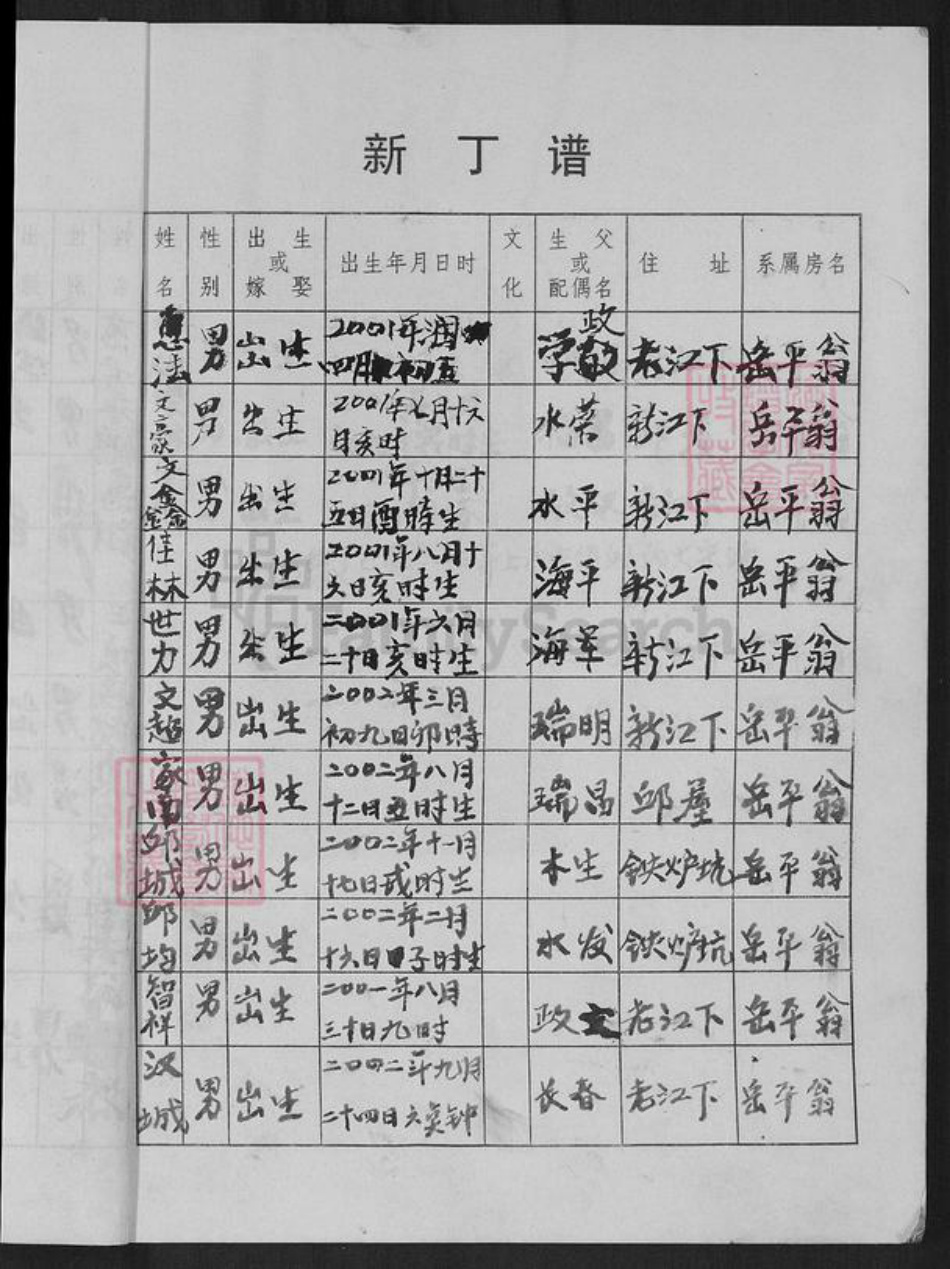 新丁谱
姓名 性别 出生或嫁娶 出生年月日时 文化 生父或配偶名 住址 系属房名
法 男 出生 2001年润四月初五 学政 老江下 岳平翁
文豪 男 出生 2001年七月十六日亥时 水荣 新江下 岳平翁
文鑫 男 出生 2001年十月二十五日酉時生 水平 新江下 岳平翁
佳林 男 出生 2001年八月十六日亥时生 海平 新江下 岳平翁
世力 男 出生 二001年六月二十日亥时生 海军 新江下 岳平翁
文超 男 出生 二00二年三月初九日卯時 瑞明 新江下 岳平翁
家南 男 出生 二00二年八月十二日丑时生 瑞昌 邱屋 岳平翁
邱城 男 出生 二00二年十一月十七日戌时生 木生 铁炉坑 岳平翁
邱均 男 出生 二00二年二月十六日子时生 水发 铁炉坑 岳平翁
智祥 男 出生 二00一年八月三十日九时 政文 老江下 岳平翁
汉城 男 出生 二00二年九月二十四日六点钟 长春 老江下 岳平翁
FamilySearch